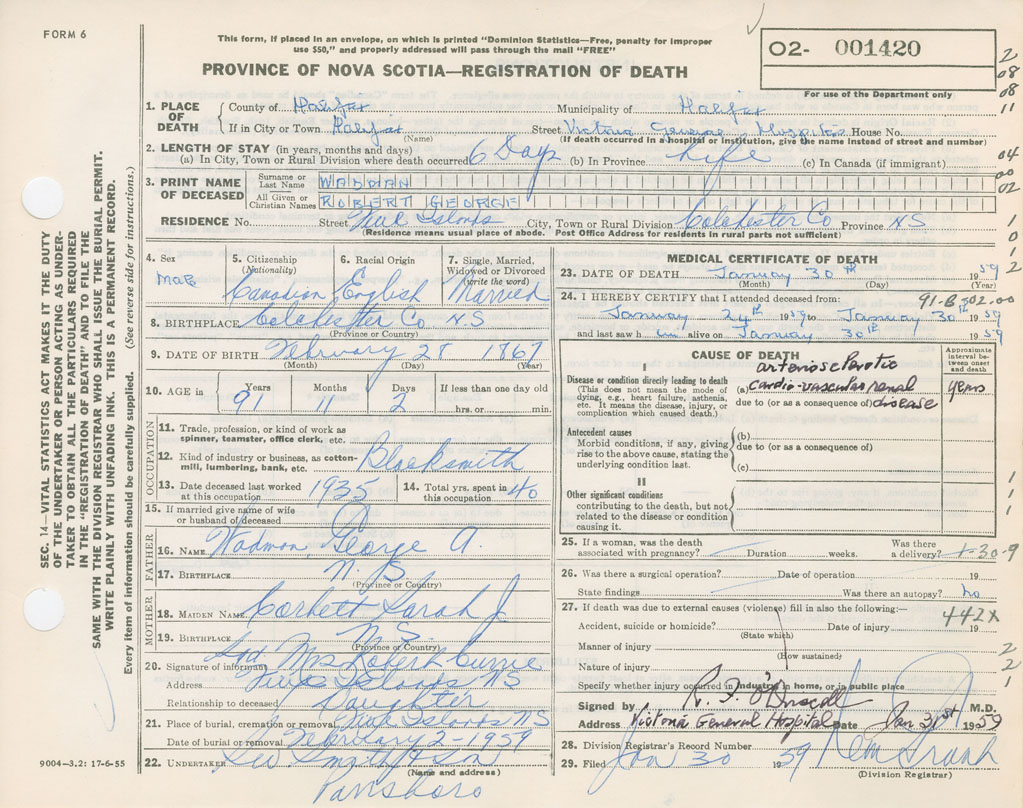 FORM 6
This form, if placed in an envelope, on which is printed "Dominion Statistics—Free, penalty for improper
use $50," and properly addressed will pass through the mail "FREE"
PROVINCE OF NOVA SCOTIA—REGISTRATION OF DEATH
O2- 001420
For use of the Department only
2
08
08
11
04
00
02
1
0
1
2
SEC. 14—VITAL STATISTICS ACT MAKES IT THE DUTY
OF THE UNDERTAKER OR PERSON ACTING AS UNDER-
TAKER TO OBTAIN ALL THE PARTICULARS REQUIRED
IN THE "REGISTRATION OF DEATH" AND TO FILE THE
SAME WITH THE DIVISION REGISTRAR WHO SHALL ISSUE THE BURIAL PERMIT.
WRITE PLAINLY WITH UNFADING INK. THIS IS A PERMANENT RECORD.
Every item of information should be carefully supplied. (See reverse side for instructions.)
1. PLACE OF DEATH { County of Halifax Municipality of Halifax
If in City or Town Halifax Street Victoria General Hospital House No.
(Name) (If death occurred in a hospital or institution, give the name instead of street and number)
2. LENGTH OF STAY (in years, months and days)
(a) In City, Town or Rural Division where death occurred 6 Days (b) In Province Life (c) In Canada (if immigrant)
3. PRINT NAME OF DECEASED
Surname or Last Name WADMAN
All Given or Christian Names ROBERT GEORGE
RESIDENCE No. Street Five Islands City, Town or Rural Division Colchester Co Province N S
(Residence means usual place of abode. Post Office Address for residents in rural parts not sufficient)
4. Sex
Male
5. Citizenship
(Nationality)
Canadian
6. Racial Origin
English
7. Single, Married,
Widowed or Divorced
(write the word)
Married
8. BIRTHPLACE Colchester Co N.S
(Province or Country)
9. DATE OF BIRTH February 28 1867
(Month) (Day) (Year)
10. AGE in Years Months Days If less than one day old
91 11 2 hrs. or min.
OCCUPATION
11. Trade, profession, or kind of work as
spinner, teamster, office clerk, etc.
12. Kind of industry or business, as cotton-
mill, lumbering, bank, etc. Blacksmith
13. Date deceased last worked
at this occupation 1935
14. Total yrs. spent in
this occupation 40
15. If married give name of wife
or husband of deceased
FATHER
16. NAME Wadman, George A.
17. BIRTHPLACE N. B.
(Province or Country)
MOTHER
18. MAIDEN NAME Corbett Sarah J
19. BIRTHPLACE N.S.
(Province or Country)
20. Signature of informant Sgd Mrs Robert Currie
Address Five Islands NS
Relationship to deceased Daughter
21. Place of burial, cremation or removal Five Islands NS
Date of burial or removal February 2-1959
22. UNDERTAKER Geo Smith & Son
(Name and address)
Parrsboro
9004-3.2: 17-6-55
MEDICAL CERTIFICATE OF DEATH
23. DATE OF DEATH January 30th 1959
(Month) (Day) (Year)
24. I HEREBY CERTIFY that I attended deceased from: 91-B 302.00
January 24th 1959 to January 30th 1959
and last saw him alive on January 30th 1959
CAUSE OF DEATH
Approximate
interval be-
tween onset
and death
I
Disease or condition directly leading to death
(This does not mean the mode of
dying, e.g., heart failure, asthenia,
etc. It means the disease, injury, or
complication which caused death.)
arteriosclerotic
(a) cardio-vascular renal years
due to (or as a consequence of) disease
Antecedent causes
Morbid conditions, if any, giving
rise to the above cause, stating the
underlying condition last.
(b)
due to (or as a consequence of)
(c)
II
Other significant conditions
contributing to the death, but not
related to the disease or condition
causing it.
1
1
1
25. If a woman, was the death
associated with pregnancy? Duration weeks. Was there
a delivery? 1-30-9
26. Was there a surgical operation? Date of operation 19
State findings Was there an autopsy? No
27. If death was due to external causes (violence) fill in also the following:—
442X
Accident, suicide or homicide? Date of injury 19
(State which)
Manner of injury 2
(How sustained)
Nature of injury 2
Specify whether injury occurred in industry, in home, or in public place 1
Signed by R. F. O'Driscoll M.D.
Address Victoria General Hospital Date Jan 31st 1959
28. Division Registrar's Record Number
29. Filed Jan 30 1959
(Division Registrar)